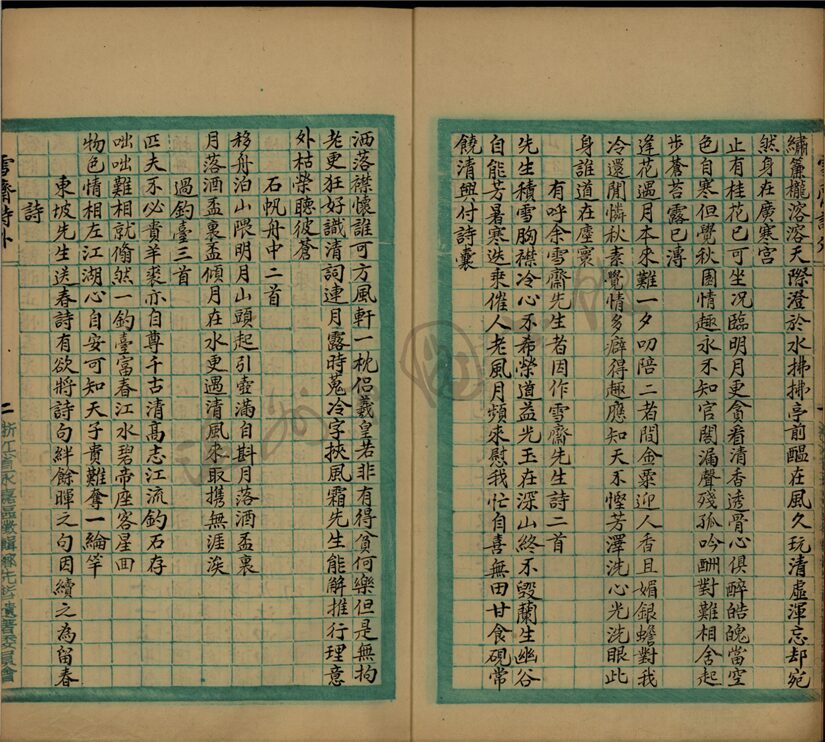 繡簾櫳溶溶天際澄於水拂拂亭前醖在風久玩清虛渾忘却宛
然身在廣寒宮
止有桂花已可坐况臨明月更貪看清香透骨心俱醉皓魄當空
色自寒但覺秋園情趣永不知官閣漏聲殘孤吟酬對難相舍起
步蒼苔露已漙
逢花遇月本來難一夕叨陪二者間金粟迎人香且媚銀蟾對我
冷還閒憐秋素覺情多癖得趣應知天不慳芳澤洗心光洗眼此
身誰道在塵寰
有呼余雪齋先生者因作雪齋先生詩二首
先生積雪胸襟冷心不希榮道益光玉在深山終不毀蘭生幽谷
自能芳暑寒迭乘催人老風月頻來慰我忙自喜無田甘食硯常
饒清興付詩囊
洒落襟懷誰可方風軒一枕侶羲皇若非有得貧何樂但是無拘
老更狂好識清詞連月露時蒐冷字挾風霜先生能解推行理意
外枯榮聽彼蒼
石帆舟中二首
移舟泊山隈明月山頭起引壺滿自斟月落酒盃裏
月落酒盃裏盃傾月在水更遇清風來取攜無涯涘
過釣臺三首
匹夫不必貴羊裘亦自尊千古清高志江流釣石存
咄咄難相就翛然一釣臺富春江水碧帝座客星回
物色情相左江湖心自安可知天子貴難奪一綸竿
東坡先生送春詩有欲將詩句絆餘暉之句因續之為留春
詩
雪齋詩外
二
浙江省永嘉區徵輯鄉先哲遺著委員會